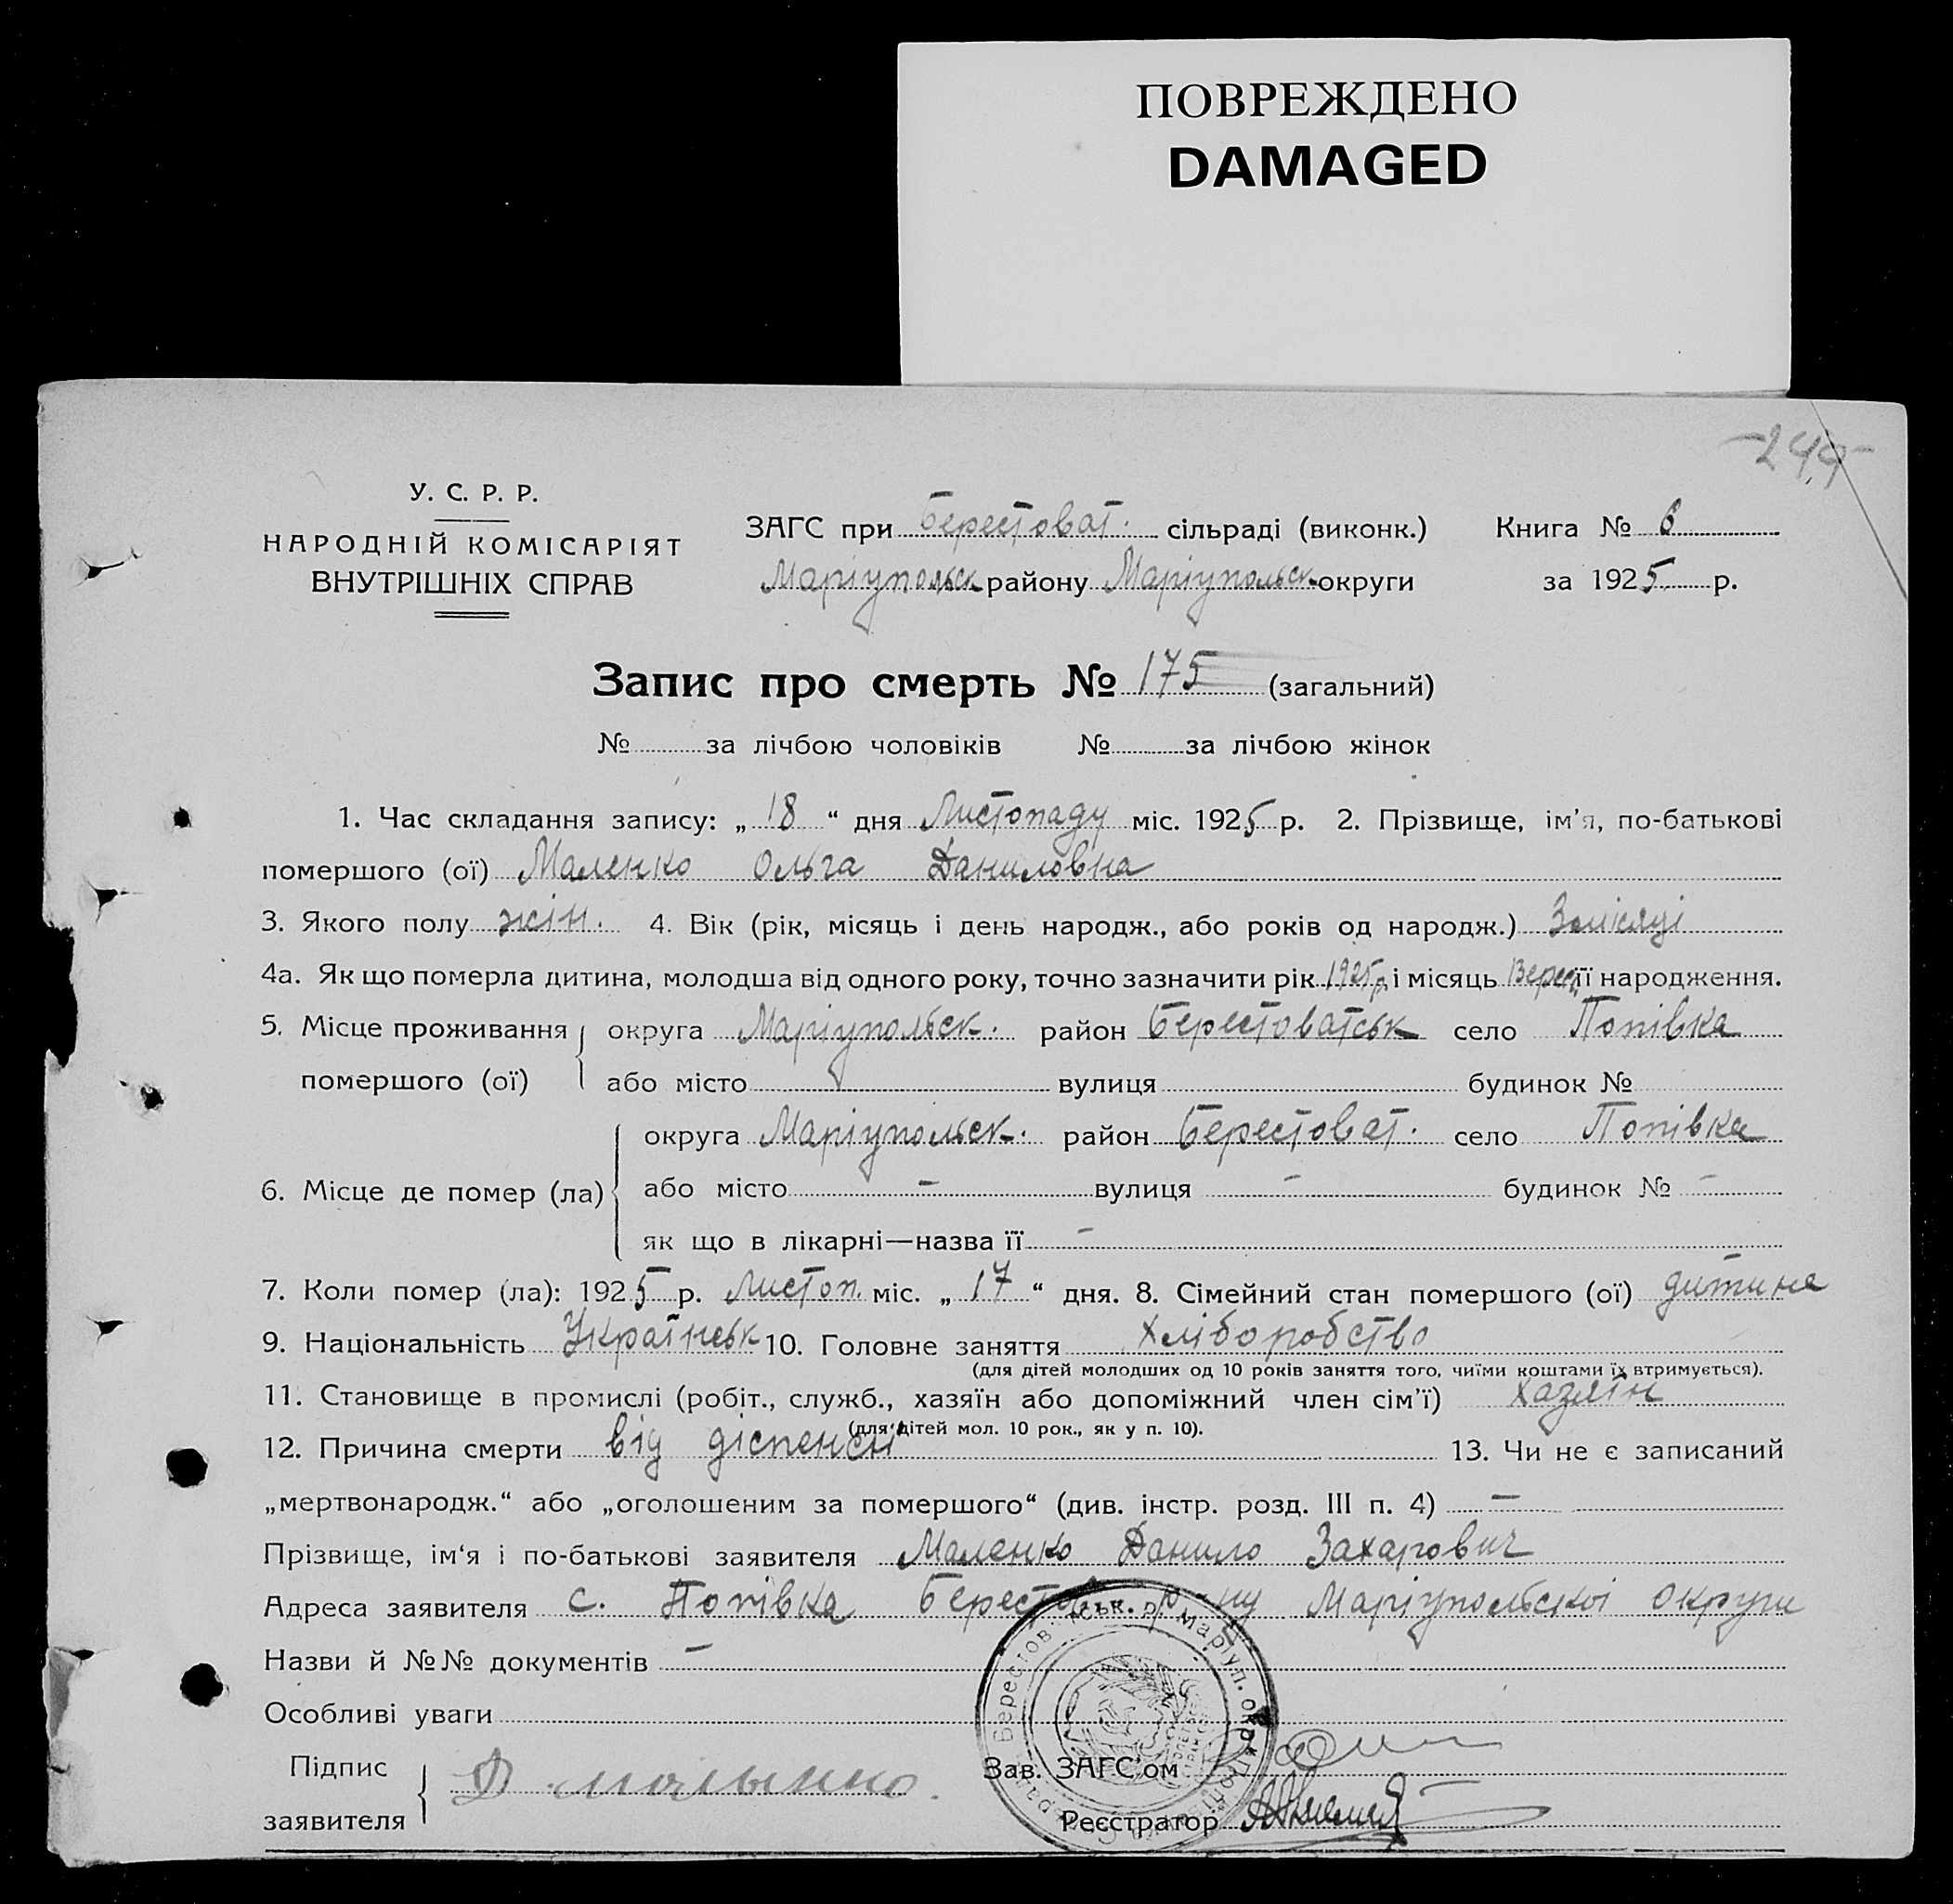 ПОВРЕЖДЕНО
DAMAGED
-249-
У. С. Р. Р.
НАРОДНІЙ КОМІСАРІЯТ
ВНУТРІШНІХ СПРАВ
ЗАГС при Берестоват. сільраді (виконк.) Книга № 6
Маріупольск району Маріупольск. округи за 1925 р.
Запис про смерть № 175 (загальний)
№ за лічбою чоловіків № за лічбою жінок
1. Час складання запису: „ 18 “ дня Листопаду міс. 1925 р. 2. Прізвище, ім’я, по-батькові
помершого (ої) Маленко Ольга Даниловна
3. Якого полу жін. 4. Вік (рік, місяць і день народж., або років од народж.) 3 місяці
4а. Як що померла дитина, молодша від одного року, точно зазначити рік 1925 р. і місяць Верес. її народження.
5. Місце проживання округа Маріупольск. район Берестоватськ село Попівка
помершого (ої) або місто вулиця будинок №
округа Маріупольск. район Берестоват. село Попівка
6. Місце де помер (ла) або місто - вулиця - будинок № -
як що в лікарні—назва її -
7. Коли помер (ла): 1925 р. Листоп. міс. „ 17 “ дня. 8. Сімейний стан помершого (ої) дитина
9. Національність Українськ 10. Головне заняття Хліборобство
(для дітей молодших од 10 років заняття того, чиїми коштами їх втримується).
11. Становище в промислі (робіт., служб., хазяїн або допоміжний член сім’ї) хазяїн
(для дітей мол. 10 рок., як у п. 10).
12. Причина смерти від діспенсії 13. Чи не є записаний
„мертвонародж.“ або „оголошеним за помершого“ (див. інстр. розд. III п. 4) -
Прізвище, ім‘я і по-батькові заявителя Маленко Данило Захарович
Адреса заявителя с. Попівка Берестов. р-ну Маріупольскої округи
Назви й №№ документів -
Особливі уваги
Підпис
заявителя Д Малынко
Зав. ЗАГС’ом
Реєстратор